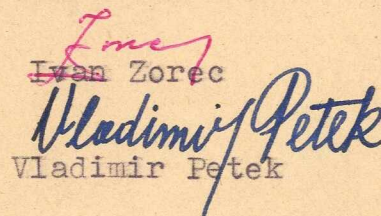 Ivan Zorec
Vladimir Petek
Vladimir Petek